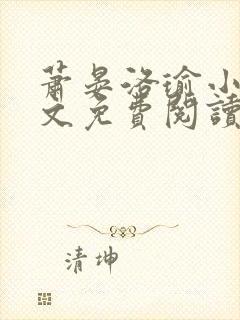 蕭晏洛瑜小
文免費閱讀
清坤